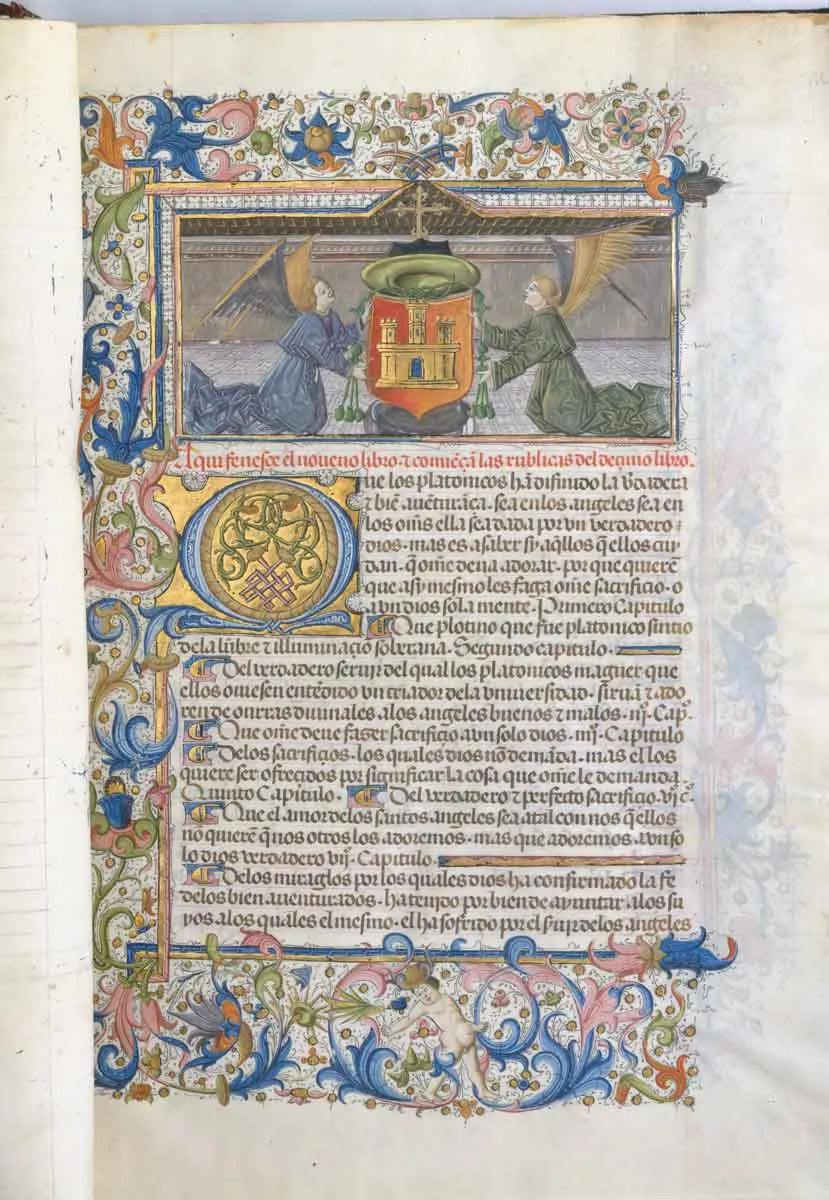 Aqui fenesçe el noueno libro ⁊ comiẽçã las rublicas del deçimo libro.
Que los platonicos hã difinido la v̉dadera
⁊ biẽ auẽturãça. sea en los angeles sea en
los om̃s ella sea dada por vn verdadero
dios. mas es a saber sy aq̃llos q̃ ellos cuy
dan. q̃ om̃e deua adorar. por que quierẽ
que asy mesmo les faga om̃e sacrificio. o
a vn dios sola mente. Primero Capitulo
Que plotino que fue platonico sintio
de la lũbre ⁊ illuminaçio soberana. Segundo capitulo.
Del verdadero seruir del qual los platonicos maguer que
ellos ouiesen entẽdido vn criador de la vniuersidad. siruã ⁊ ado
ren de onrras diuinales a los angeles buenos ⁊ malos. iijº. Capº.
Que om̃e deue faser sacrificio a vn solo dios. iiijº. Capitulo
De los sacrificios. los quales dios nõ demãda. mas el los
quiere ser ofrecidos por significar la cosa que om̃e le demanda.
Quinto Capitulo. Del verdadero ⁊ perfecto sacrificio. vjº cº.
Que el amor de los santos angeles sea atal con nos q̃ ellos
nõ quierẽ q̃ nos otros los adoremos. mas que adoremos a vn so
lo dios verdadero vijº. Capitulo.
De los miraglos por los quales dios ha confirmado la fe
de los bien auenturados. ha tenido por bien de ayuntar. a los su
yos a los quales el mesmo. el ha sofrido por el s̃uir de los angeles